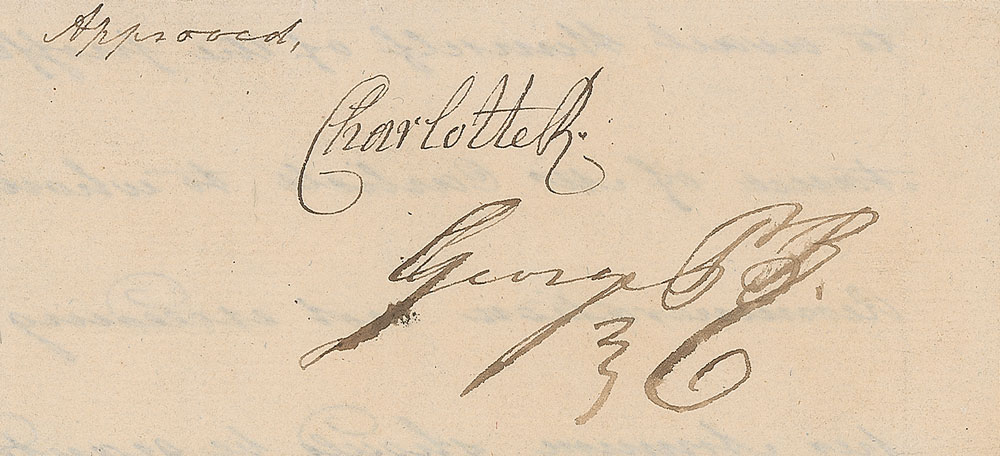 Approved,
Charlotte R.
George P. R.